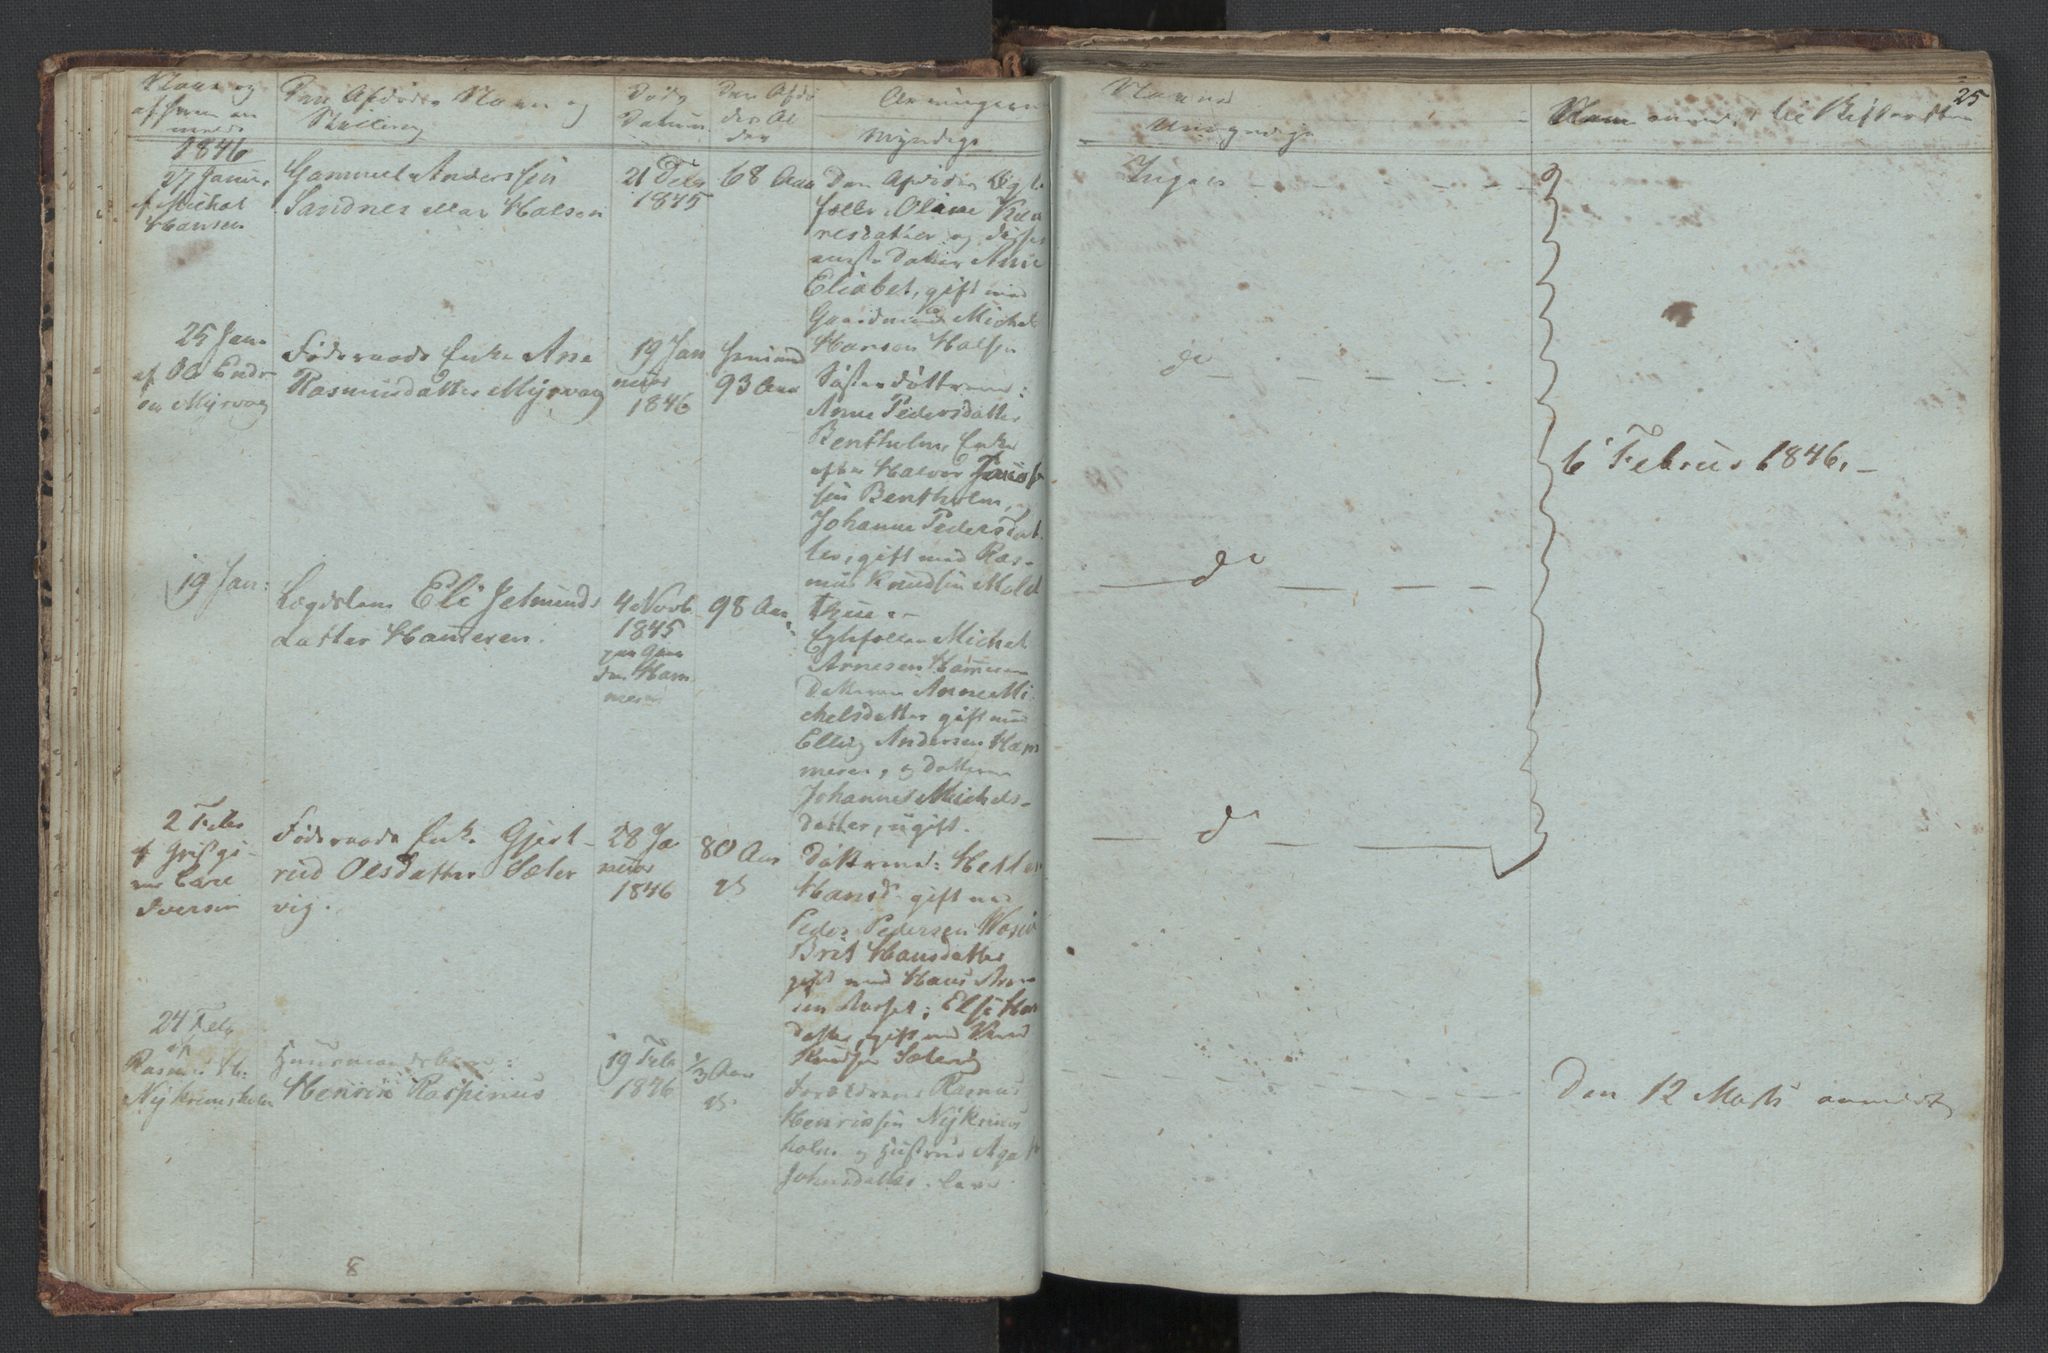 25
Naar og
af hvem an
meldt
Den Afdødes Navn og
Stilling
Døds
Datum
Den Afdø
des Al
der
Arvingernes
Myndige
Navne
Umyndige
Naar anmeldt til Skifteretten
1846
27 Januar
af Michel
Hansen
Gammel Anderssen
Sandnes eller Halsen
21 Febr
1845
68 Aar
Den Afdødes Egte
fælle Oline Knu
resdatter og disses
eneste Datter Ane
Elisabet, gift med
Gaardmand Michel
Hansen Halsen
Ingen
25 Jan
af Ole Endre
sen Myrvaag
Føderaads Enke Ane
Rasmusdatter Myrvaag
19 Jan
nuar
1846
93 Aar
Søsterdøttrene:
Anne Pedersdatter
Bentholm, Enke
efter Halvor
sen Bentholm,
Johanne Pedersdat
ter, gift med Ras-
mus Knudsen Mold
do
6 Februar 1846. –
19 Jan:
Lægdslem Eli Jetmunds
datter Hameren.
4 Novb.
1845
paa Gaar
den Ham
meren
98 Aar
Egtefællen Michel
Arnesen Hammeren
Datteren Anne Mi
chelsdatter gift med
Elling Andersen Ham
meren, og Datteren
Johanne Michels-
datter, ugift.
do
2 Febr
af
Iversen
Føderaads Enke Gjert-
rud Olsdatter Sæter
vig.
28 Ja
nuar
1846
80 Aar
Døttrene:
Hansd. gift med
Peder Pedersen
Brit Hansdatter
gift med Hans Arne
sen Aarset; Else Han
datter, gift med Knud
Knudsen Sætervig
do
24 Febr
af
Rasmus H:
Huusmandsbarn:
Henrik Raspinus
19 Febr
1846
1/3 Aar
Forældrene Rasmus
Henrikssen
holm og Hustrue Agate
Johnsdatter.
Den 12 Marts anmeldt
8